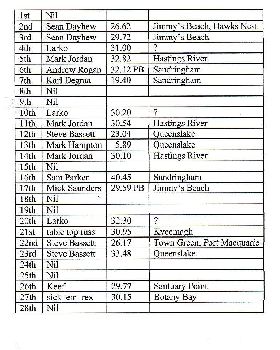 1st Nil
2nd Sean Dayhew 26.62 Jimmy's Beach, Hawks Nest
3rd Sean Dayhew 29.72 Jimmy's Beach
4th Larko 31.00 ?
5th Mark Jordan 32.82 Hastings River
6th Andrew Rogan 32.12 PB Sandringham
7th Karl Degnia 19.40 Sandringham
8th Nil
9th Nil
10th Larko 30.20 ?
11th Mark Jordan 30.54 Hastings River
12th Steve Bassett 23.04 Queenslake
13th Mark Hampton 5.89 Queenslake
14th Mark Jordan 30.10 Hastings River
15th Nil
16th Sam Parker 40.45 Sandringham
17th Mick Saunders 29.59 PB Jimmy's Beach
18th Nil
19th Nil
20th Larko 32.30 ?
21st table top russ 30.95 Kyeemagh
22nd Steve Bassett 26.17 Town Green, Port Macquarie
23rd Steve Bassett 33.48 Queenslake
24th Nil
25th Nil
26th Keef 29.77 Santuary Point
27th sick em rex 30.15 Botany Bay
28th Nil